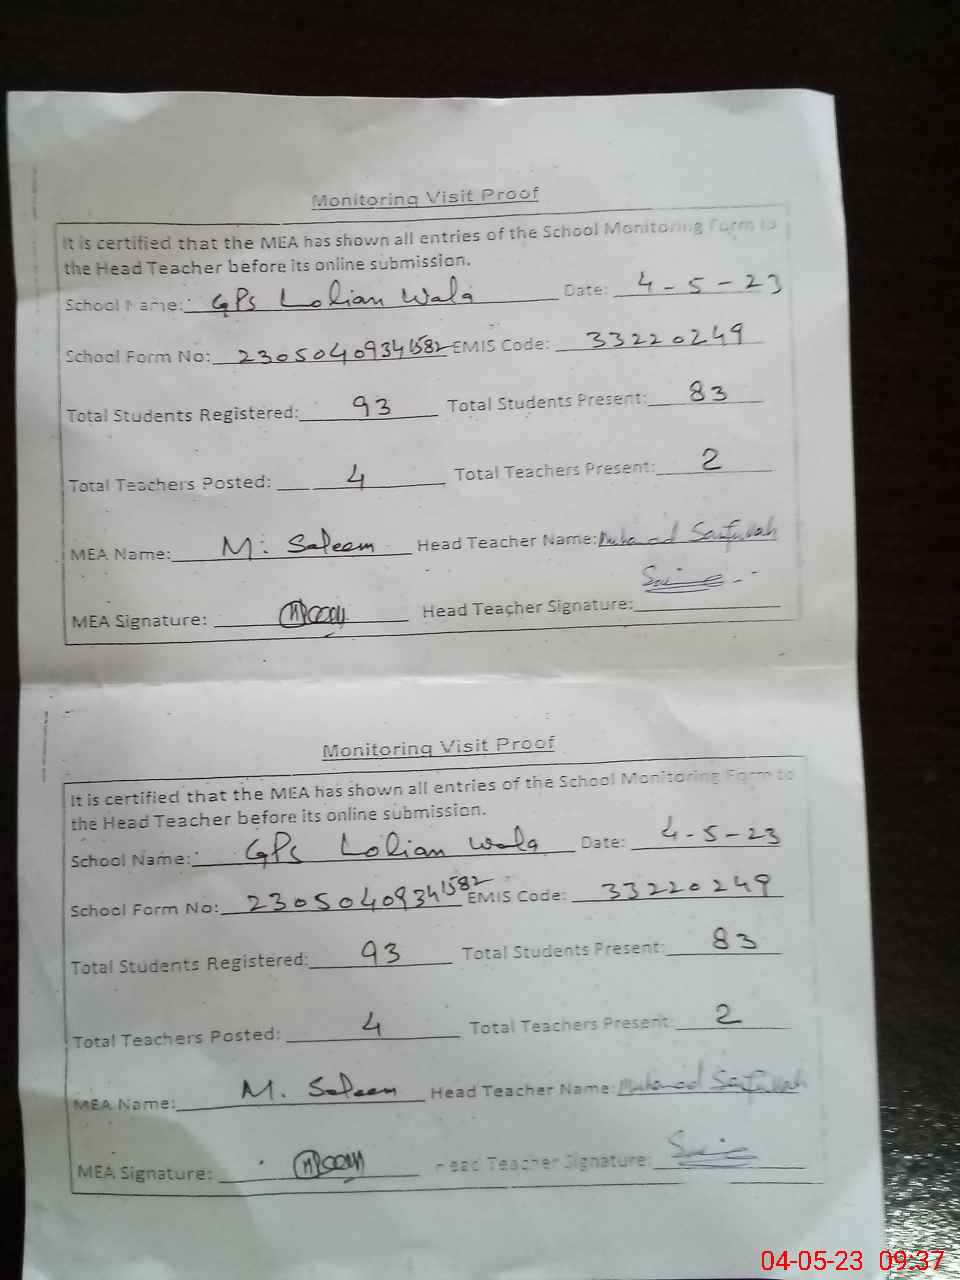 Monitoring Visit Proof
It is certified that the MEA has shown all entries of the School Monitoring Form to
the Head Teacher before its online submission.
School Name: GPS Lolian Wala Date: 4-5-23
School Form No: 23050409341582 EMIS Code: 33220249
Total Students Registered: 93 Total Students Present: 83
Total Teachers Posted: 4 Total Teachers Present: 2
MEA Name: M. Saleem Head Teacher Name: Muhamad Saifullah
MEA Signature: Head Teacher Signature:
Monitoring Visit Proof
It is certified that the MEA has shown all entries of the School Monitoring Form to
the Head Teacher before its online submission.
School Name: GPS Lolian Wala Date: 4-5-23
School Form No: 23050409341582 EMIS Code: 33220249
Total Students Registered: 93 Total Students Present: 83
Total Teachers Posted: 4 Total Teachers Present: 2
MEA Name: M. Saleem Head Teacher Name: Muhamad Saifullah
MEA Signature: Head Teacher Signature:
04-05-23 09:37